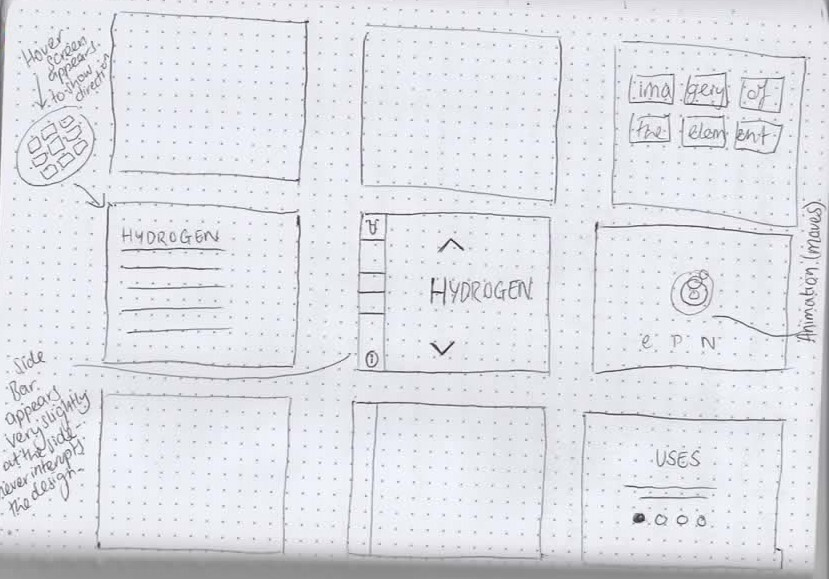 Hover
screen
appears
to show
direction
ima gery of
the elem ent
HYDROGEN
HYDROGEN
e P N
Animation (moves)
Side
Bar
appears
very slightly
at the side
never interupts
the design
USES